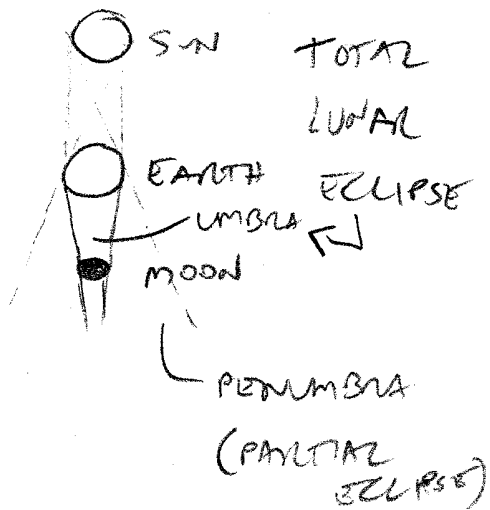 SUN
TOTAL
LUNAR
ECLIPSE
EARTH
UMBRA
MOON
PENUMBRA
(PARTIAL
ECLIPSE)